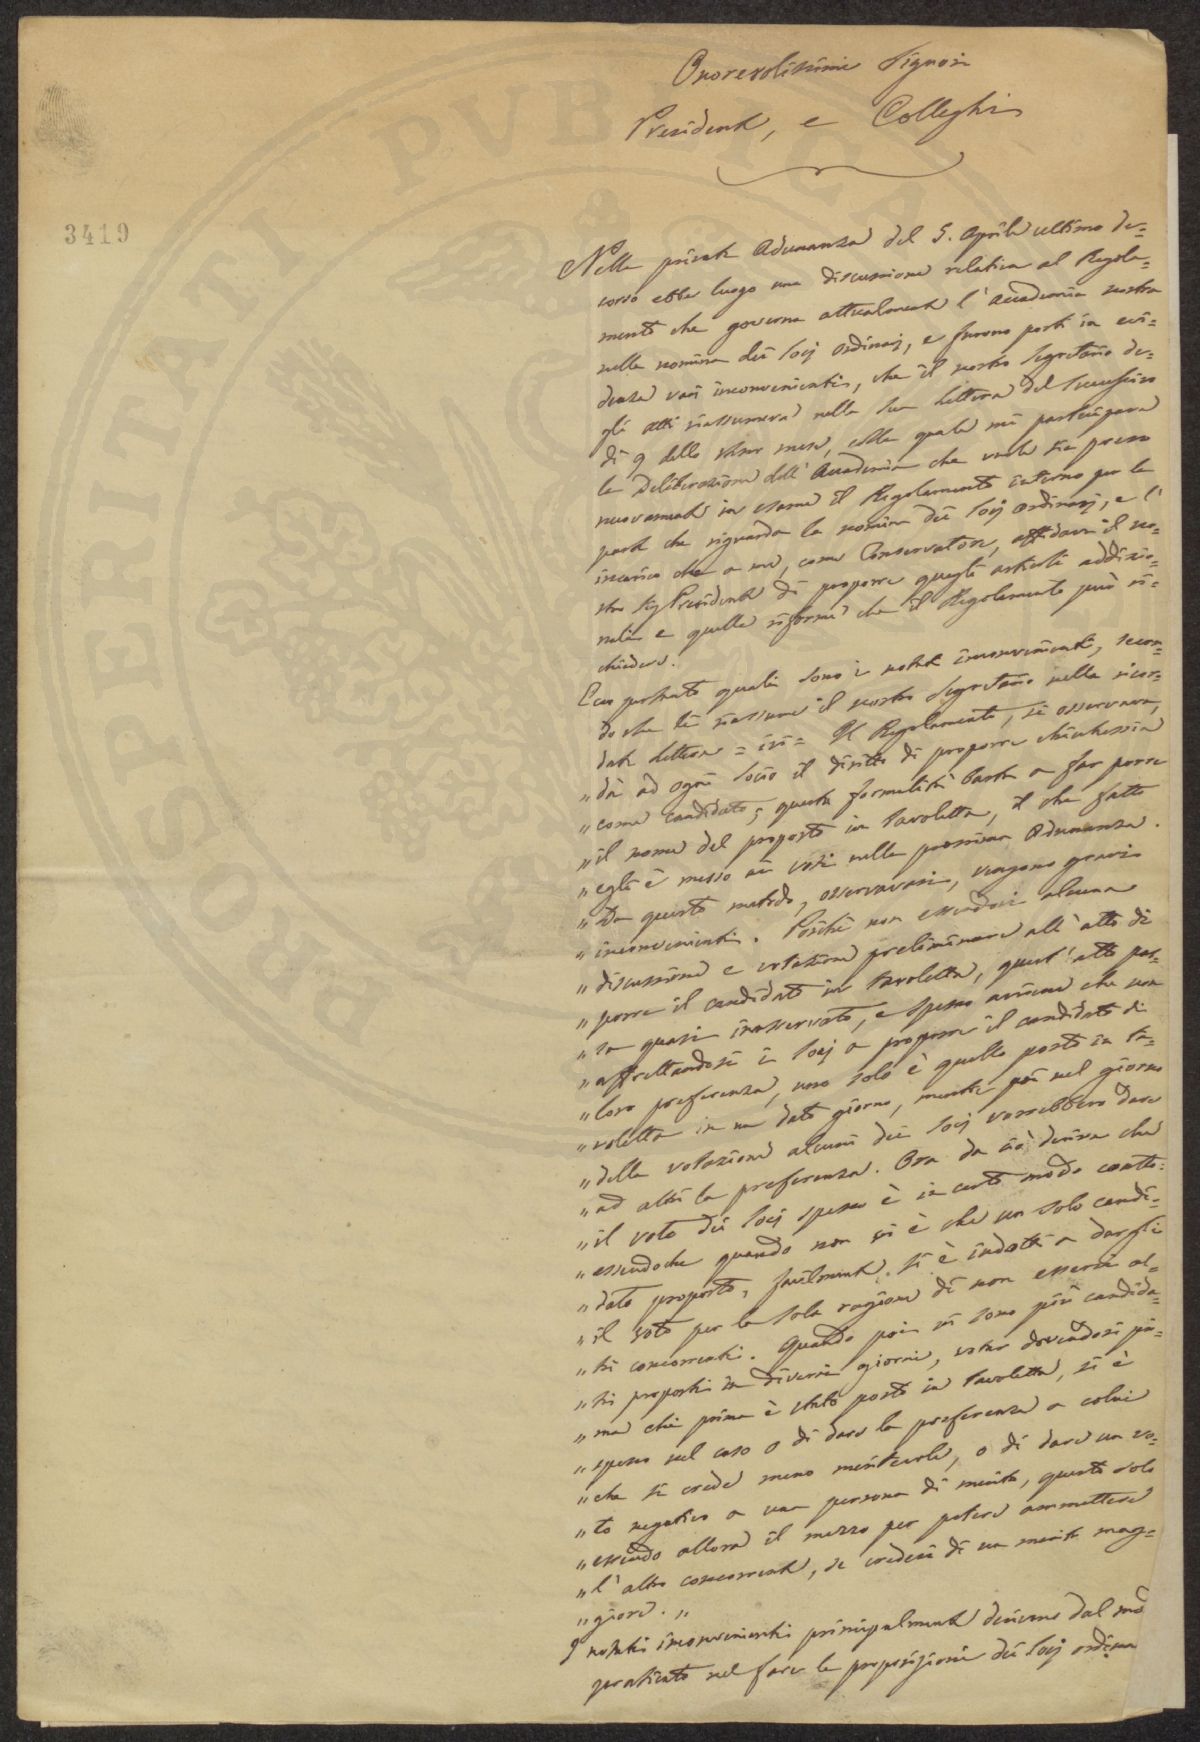 Onorevolissimi Signori
Presidente, e Colleghi
3419
Nella privata Adunanza del 5. Aprile ultimo de-
corso ebbe luogo una discussione relativa al Regola-
mento che governa attualmente l'Accademia nostra
nella nomina dei Socj Ordinarj, e furono posti in evi-
denza varj inconvenienti, che il nostro Segretario de-
gli Atti riassumeva nella sua lettera del successivo
dì 9 dello stesso mese, colla quale mi partecipava
la Deliberazione dell'Accademia che venisse preso
nuovamente in esame il Regolamento interno per la
parte che riguarda la nomina dei Socj ordinarj, e l'
incarico che a me, come Conservatore, affidava il no-
stro Sig Presidente di proporre quegli articoli addizio-
nali e quelle riforme che il Regolamento può ri-
chiedere.
Ecco pertanto quali sono i notati inconvenienti, secon-
do che li riassume il nostro Segretario nella ricor-
data lettera = ivi = Il Regolamento, si osservava,
„ dà ad ogni Socio il diritto di proporre chicchessia
„ come candidato; questa formalità basta a far porre
„ il nome del proposto in tavoletta, il che fatto
„ egli è messo ai voti nella prossima Adunanza.
„ Da questo metodo, osservavasi, vengono gravi
„ inconvenienti. Poichè non essendovi alcuna
„ discussione e votazione preliminare all'atto di
„ porre il candidato in tavoletta, quest'atto pas-
„ sa quasi inosservato, e spesso avviene che non
„ affrettandosi i Socj a proporre il candidato di
„ loro preferenza, uno solo è quello posto in ta-
„ voletta in un dato giorno, mentre poi nel giorno
„ della votazione alcuni dei Socj vorrebbero dare
„ ad altri la preferenza. Ora da ciò deriva che
„ il voto dei Socj spesso è in certo modo coatto:
„ essendochè quando non vi è che un solo candi-
„ dato proposto, facilmente si è indotti a dargli
„ il voto per la sola ragione di non esservi al-
„ tri concorrenti. Quando poi vi sono più candida-
„ ti proposti in diversi giorni, votar dovendosi pri-
„ ma chi prima è stato posto in tavoletta, si è
„ spesso nel caso o di dare la preferenza a colui
„ che si crede meno meritevole, o di dare un vo-
„ to negativo a una persona di merito, questo solo
„ essendo allora il mezzo per potere ammettere
„ l'altro concorrente, se credesi di un merito mag-
„ giore. „
I notati inconvenienti principalmente derivano dal modo
praticato nel fare le proposizioni dei Socj ordinari